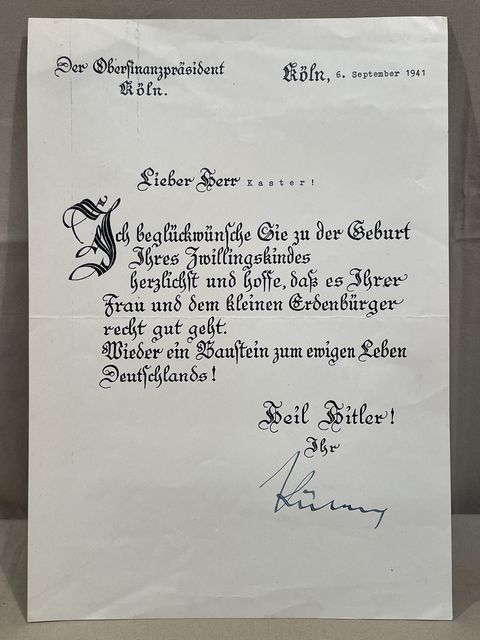 Der Oberfinanzpräsident
Köln.
Köln, 6. September 1941
Lieber Herr Kaster!
Ich beglückwünsche Sie zu der Geburt
Ihres Zwillingskindes
herzlichst und hoffe, daß es Ihrer
Frau und dem kleinen Erdenbürger
recht gut geht.
Wieder ein Baustein zum ewigen Leben
Deutschlands!
Heil Hitler!
Ihr